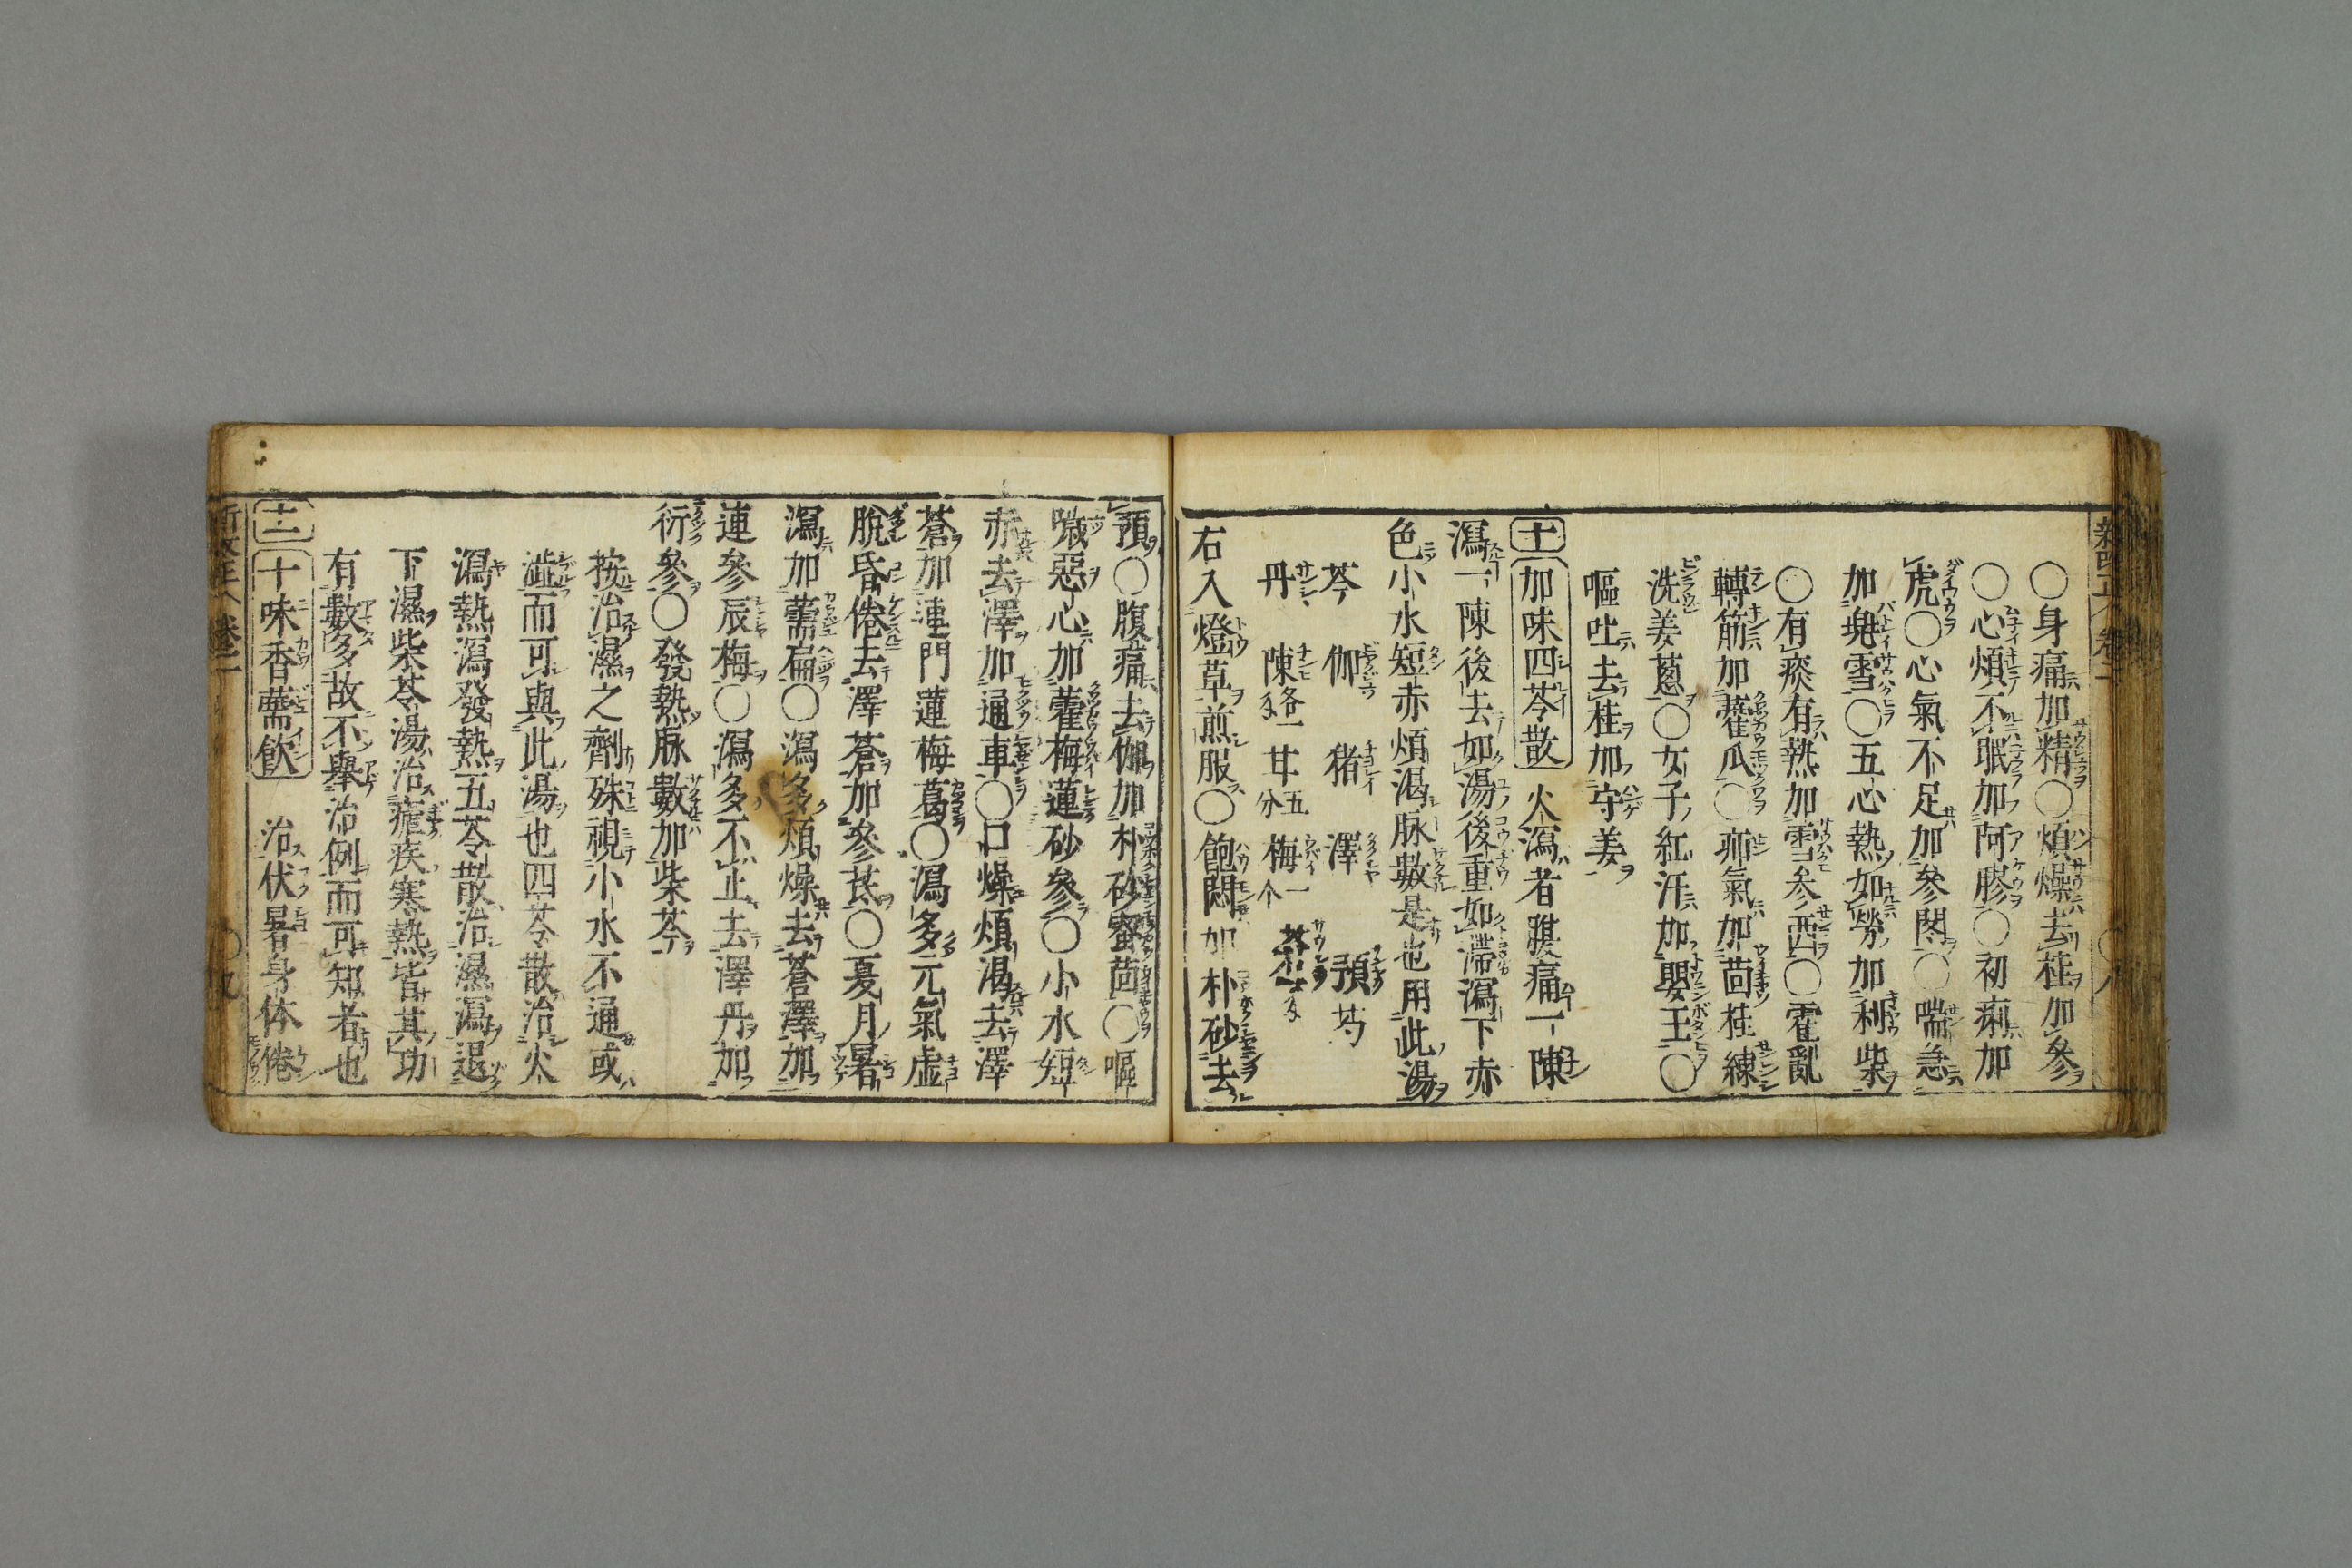 〇身痛加精〇煩燥去桂加參
〇心煩不眠加阿膠〇初痢加
虎〇心氣不足加參門〇喘急
加雪〇五心熱如勞加利柴
〇有痰有熱加雪参西〇霍亂
轉筋加藿瓜〇疝氣加茴桂練
洗姜蔥〇女子紅汗加嬰王〇
嘔吐去桂加守姜
十一 加味四苓散 火瀉者腹痛一陳
瀉一陳後去如湯後重如滞瀉下赤
色小水短赤煩渇脉數是也用此湯
苓 伽 猪 澤 預 芍
丹 陳各一 甘五分 梅一个
右入燈草煎服〇飽悶加朴砂去
預〇腹痛去伽加朴砂茴〇嘔
噦惡心加藿梅蓮砂參〇小水短
赤去澤加通車〇口燥煩渇去澤
蒼加連門蓮梅葛〇瀉多元氣虚
脫昏倦去澤蒼加參茋〇夏月暑
瀉加薷扁〇瀉多煩燥去蒼澤加
連參辰梅〇瀉多不止去澤丹加
衍參〇發熱脉數加柴芩
按治濕之劑殊視小水不通或
澁而可與此湯也四苓散治火
瀉熱瀉發熱五苓散治濕瀉退
下濕柴苓湯治瘧疾寒熱皆其功
有數多故不舉治例而可知者也
十二 十味香薷飲 治伏暑身体倦